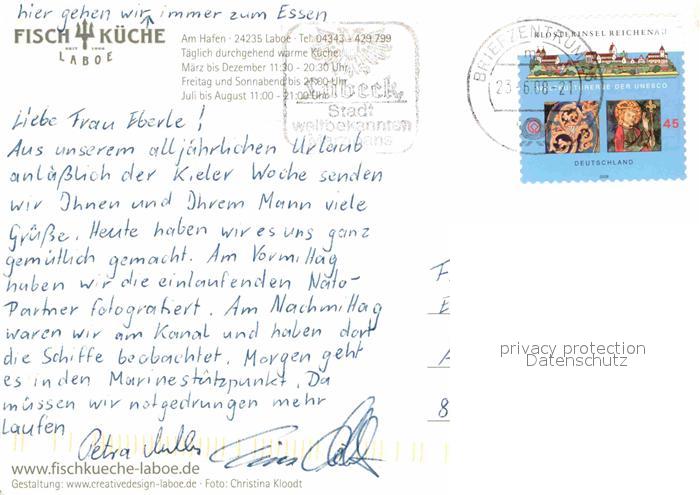 hier gehen wir immer zum Essen
FISCH KÜCHE
SEIT 1950
LABOE
Am Hafen · 24235 Laboe · Tel. 04343 - 429 799
Täglich durchgehend warme Küche:
März bis Dezember 11:30 - 20:30 Uhr
Freitag und Sonnabend bis 21:00 Uhr
Juli bis August 11:00 - 21:00 Uhr
Lübeck
Stadt
weltbekannten
BRIEFZENTRUM
KLOSTERINSEL REICHENAU
WELTKULTURERBE DER UNESCO
45
DEUTSCHLAND
2008
Liebe Frau Eberle!
Aus unserem alljährlichen Urlaub
anläßlich der Kieler Woche senden
wir Ihnen und Ihrem Mann viele
Grüße. Heute haben wir es uns ganz
gemütlich gemacht. Am Vormittag
haben wir die einlaufenden Nato-
Partner fotografiert. Am Nachmittag
waren wir am Kanal und haben dort
die Schiffe beobachtet. Morgen geht
es in den Marinestützpunkt. Da
müssen wir notgedrungen mehr
laufen
Petra
F
E
A
8
privacy protection
Datenschutz
www.fischkueche-laboe.de
Gestaltung: www.creativedesign-laboe.de · Foto: Christina Kloodt